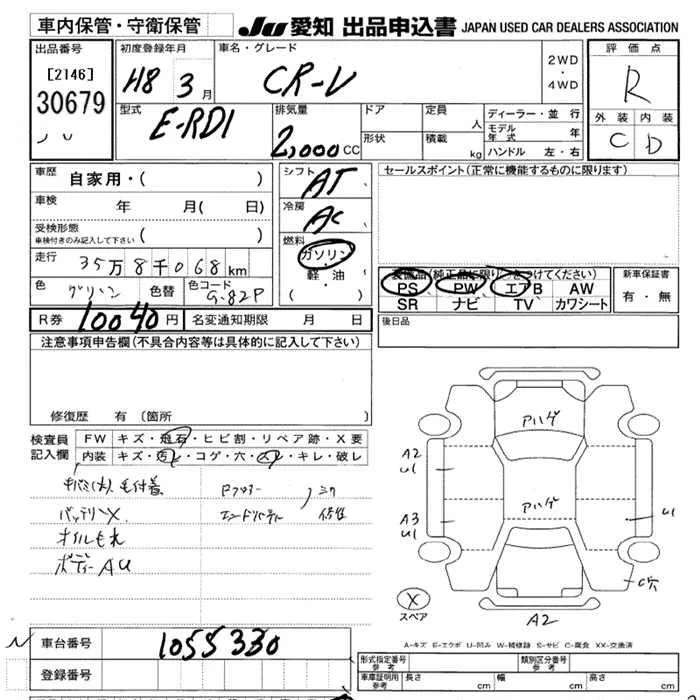 車内保管・守衛保管
JU 愛知 出品申込書 JAPAN USED CAR DEALERS ASSOCIATION
出品番号
[2146]
30679
初度登録年月
H8 3月
車名・グレード
CR-V
2WD
・
4WD
評価点
R
外装 内装
C D
型式
E-RD1
排気量
2,000 CC
ドア
形状
定員
人
積載
kg
ディーラー・並行
モデル年式 年
ハンドル 左・右
車歴 自家用・( )
車検 年 月( 日)
受検形態
車検付きのみ記入して下さい ( )
走行 35万8千068km
色 グリーン 色替 色コード G-82P
R券 10040円 名変通知期限 月 日
シフト
AT
冷房
AC
燃料
ガソリン
軽・油
( )
セールスポイント(正常に機能するものに限ります)
装備品(純正品に限り○をつけてください)
PS PW エアB AW
SR ナビ TV カワシート
新車保証書
有・無
後日品
注意事項申告欄(不具合内容等は具体的に記入して下さい)
修復歴 有(箇所 )
検査員
記入欄
FW キズ・飛石・ヒビ割・リペア跡・X要
内装 キズ・汚レ・コゲ・穴・スレ・キレ・破レ
バッテリーX
オイルもれ
ボディーAU
アハゲ
アハゲ
A2
U1
A3
U1
U1
C穴
X
スペア
A2
A-キズ E-エクボ U-凹み W-補修跡 S-サビ C-腐食 XX-交換済
車台番号 1055330
登録番号
形式指定番号
参考
類別区分番号
参考
車庫証明用
参考
長さ cm 幅 cm 高さ cm